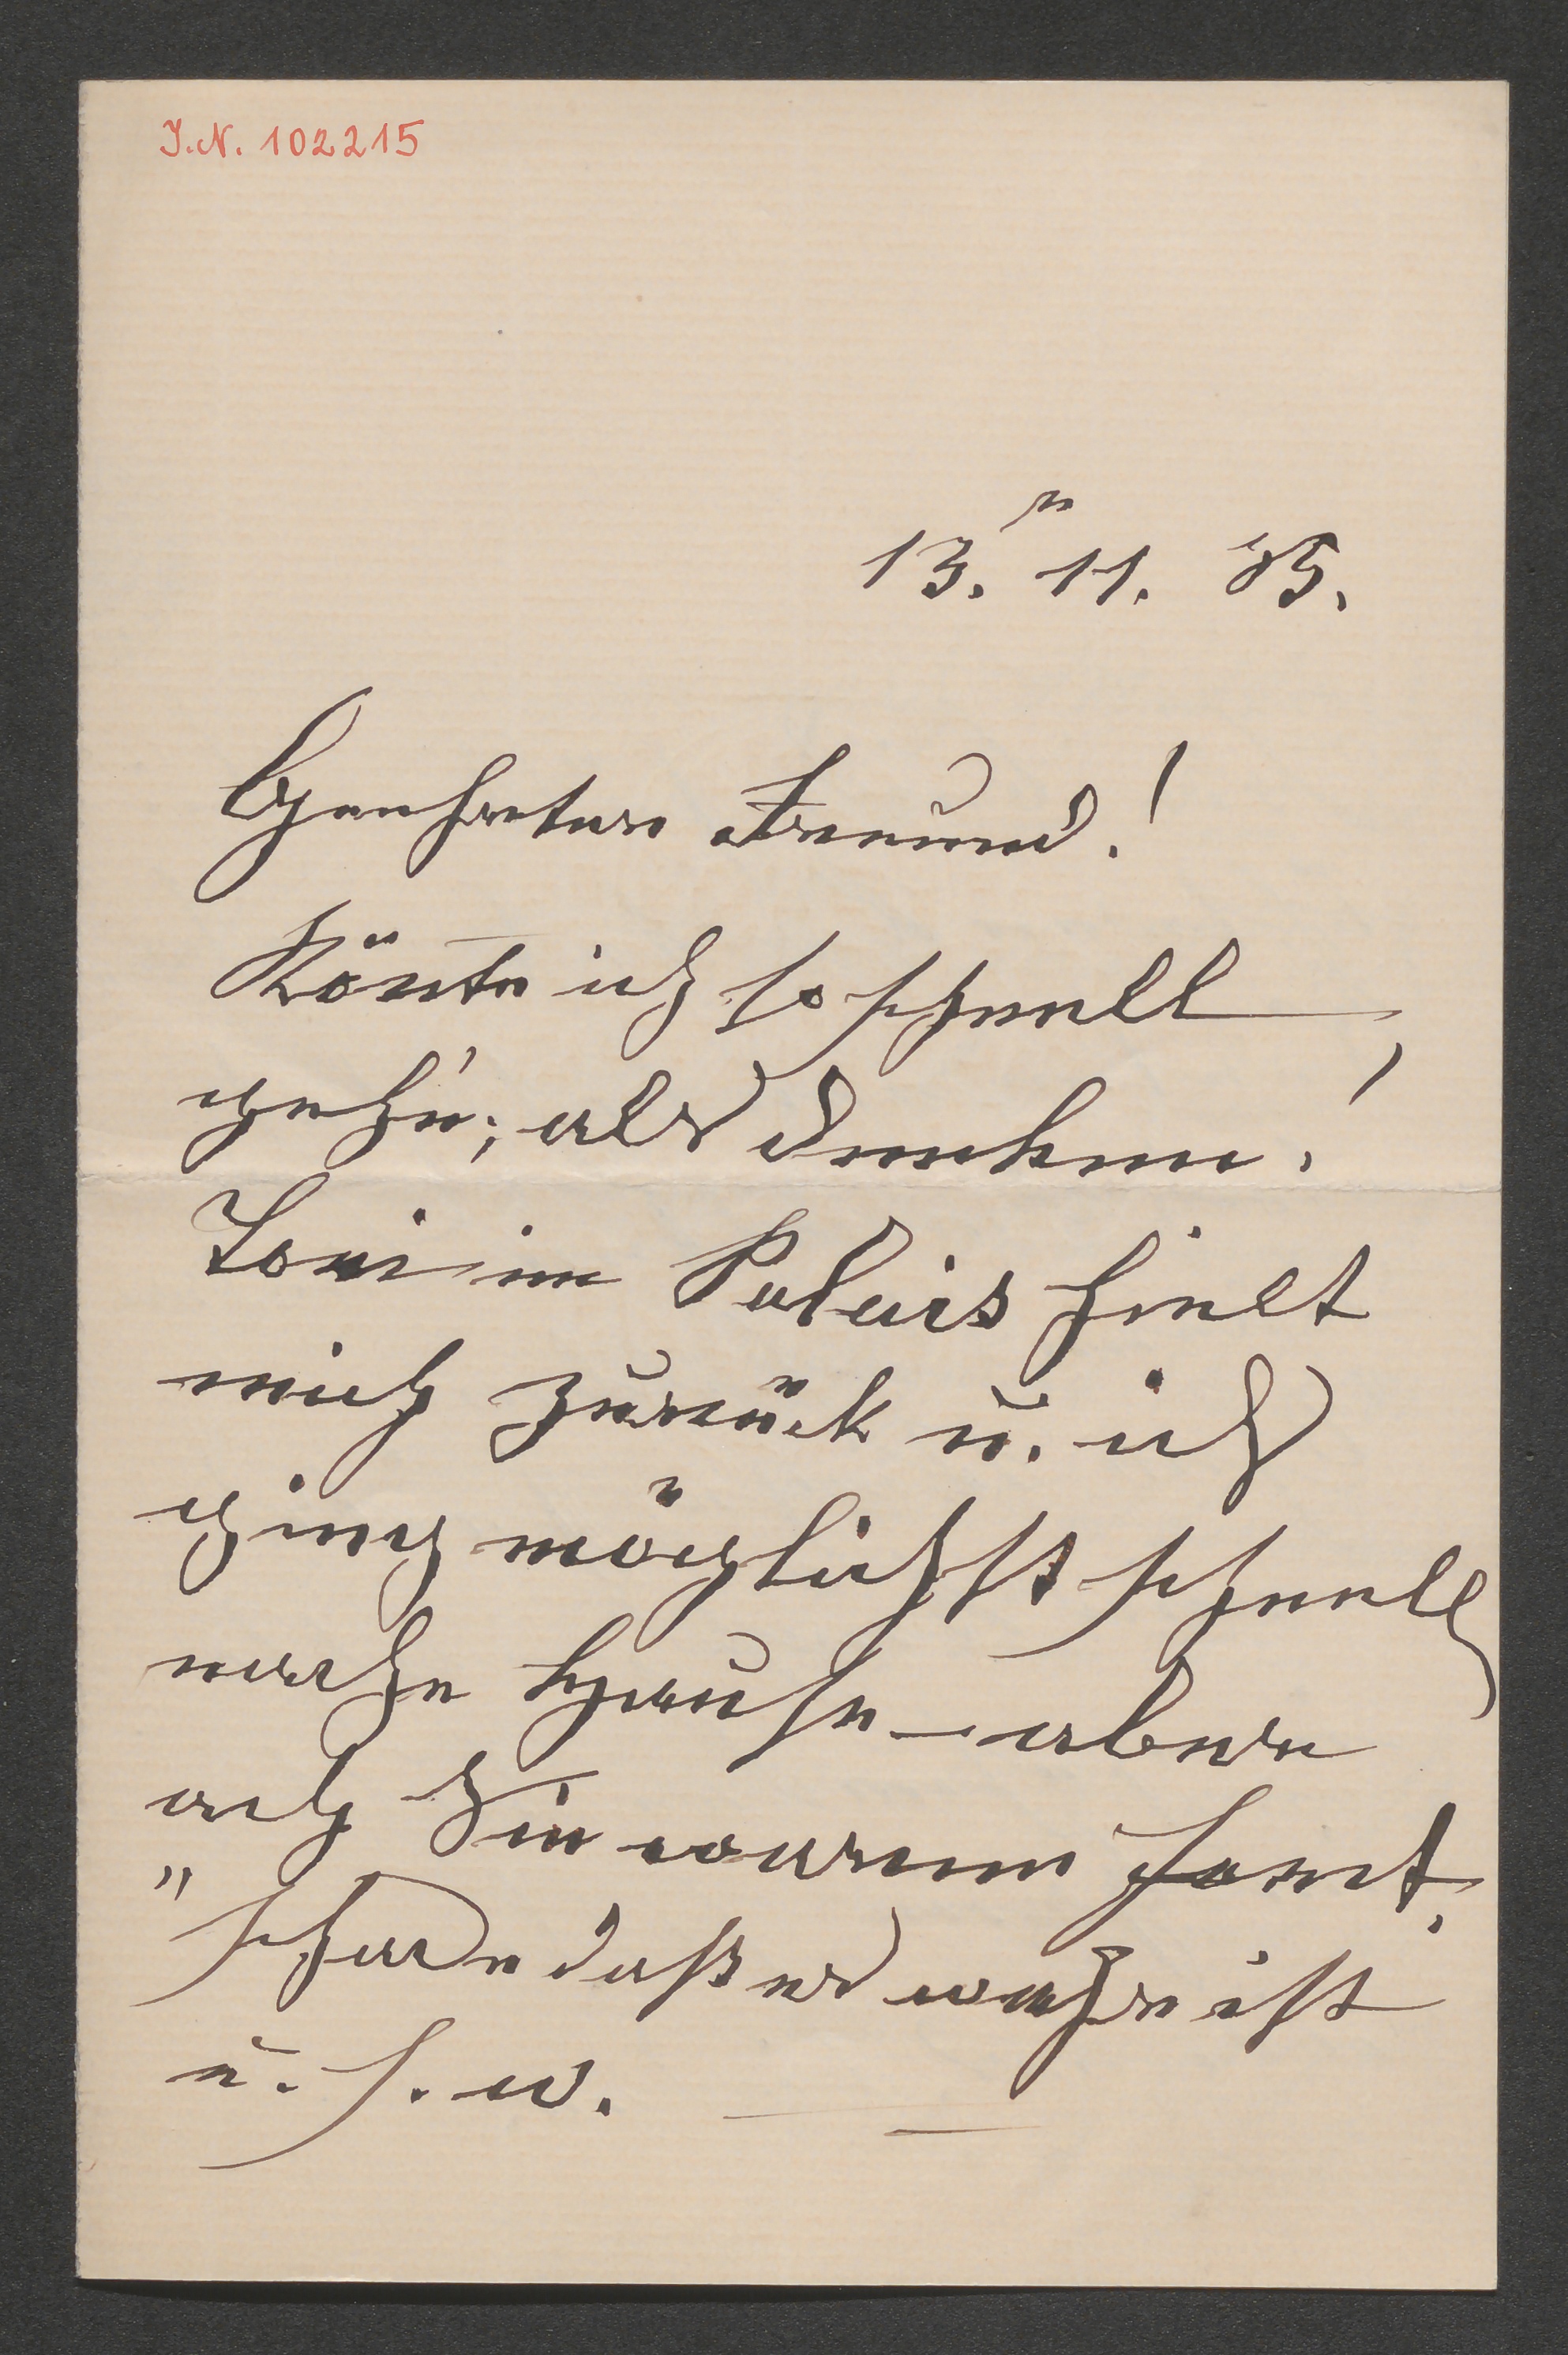 J.N. 102215
13.n 11. 85.
Geehrter Freund!
Könte ich so schnell
geh'n, als denken!
Toni im Palais hielt
mich zurück u. ich
ging möglichst schnell
nach Hause – aber
ach Sie waren fort,
"schade daß es wahr ist
u. s. w.